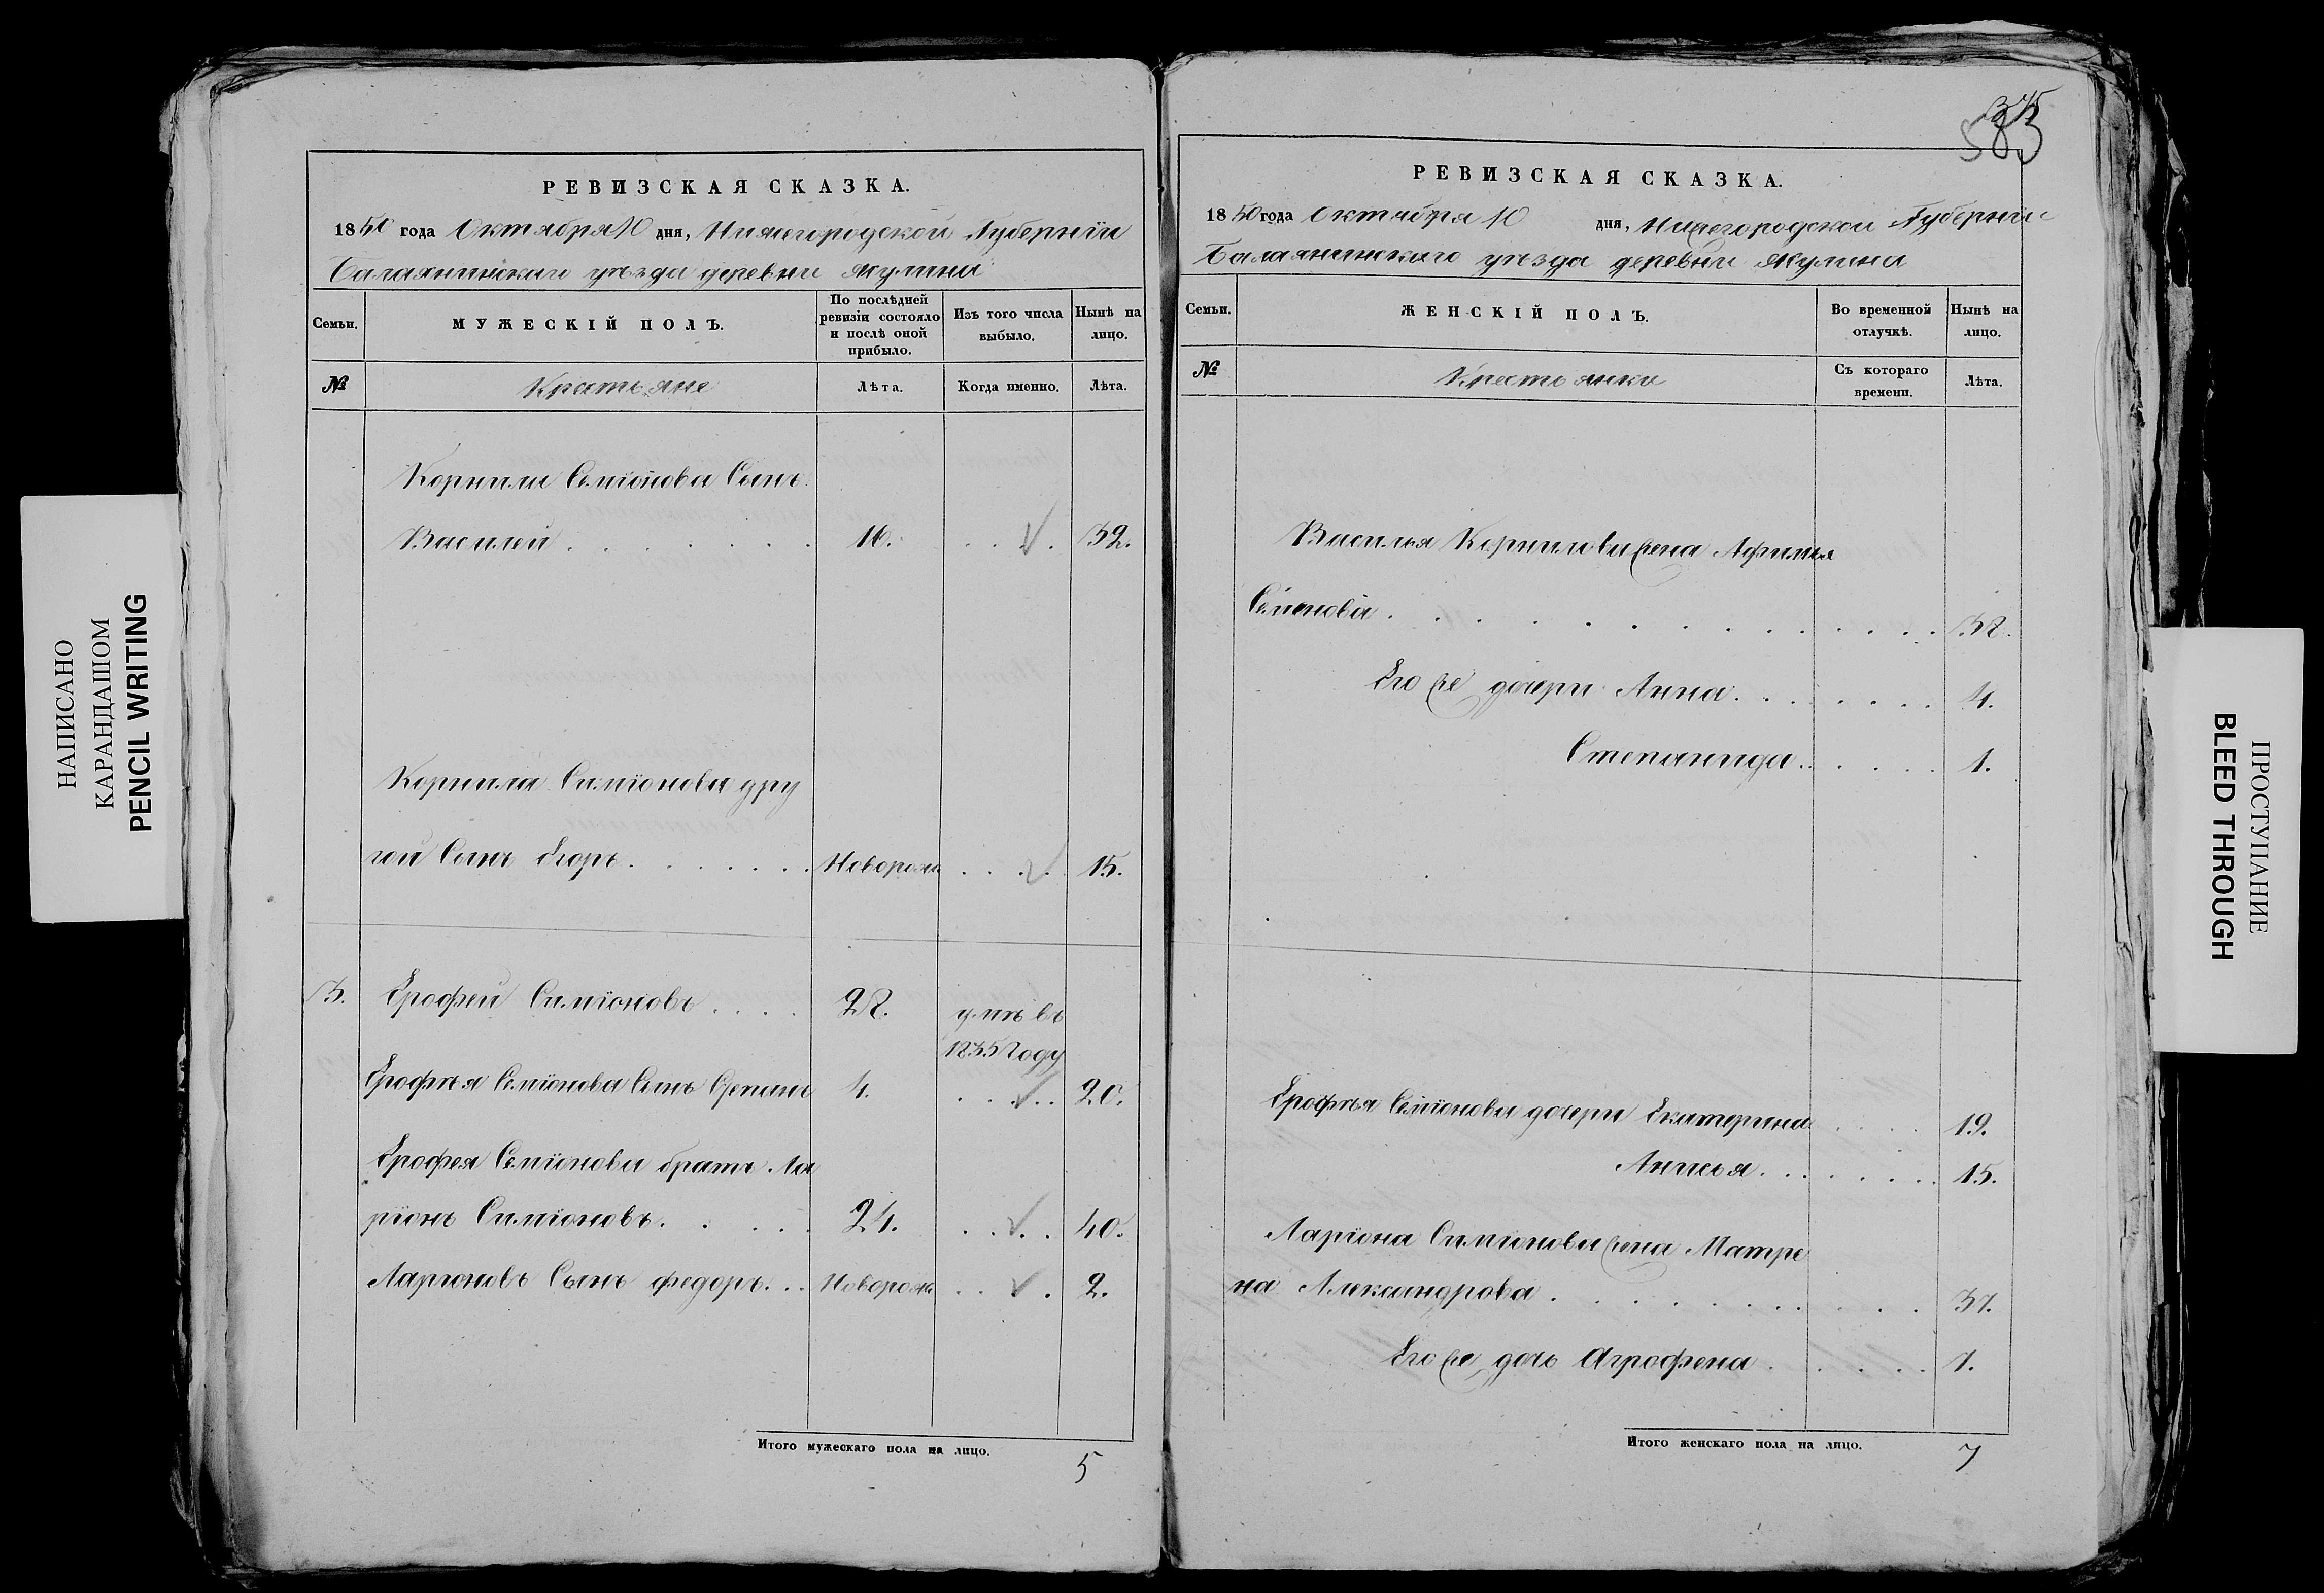 НАПИСАНО
КАРАНДАШОМ
PENCIL WRITING
РЕВИЗСКАЯ СКАЗКА.
1850 года Октября 10 дня, Нижегородской Губерніи
Балахнинскаго уѣзда деревни Жулина
Семьи.
МУЖЕСКІЙ ПОЛЪ.
По послѣдней
ревизіи состояло
и послѣ оной
прибыло.
Изъ того числа
выбыло.
Нынѣ на
лицо.
№
Крестьяне
Лѣта.
Когда именно.
Лѣта.
Корнила Семіонова Сынъ
Василей . . . . . . . 16. . . . 32.
Корнила Симіонова дру
гой Сынъ Егоръ . . . . . . . Новорож . . . . 15.
3. Ерофей Симіоновъ . . . . 28. умѣ въ
1835 Году
Ерофѣя Семіонова Сынъ Степанъ 4. . . . . 20.
Ерофея Семіонова братъ Ла
ріонъ Симіоновъ . . . . . 24. . . . . 40.
Ларіоновъ Сынъ федоръ . . . Новорож . . . 2.
Итого мужескаго пола на лицо. 5
583
РЕВИЗСКАЯ СКАЗКА.
1850 года Октября 10 дня, Нижегородской Губерніи
Балахнинскаго уѣзда деревни Жулина
Семьи.
ЖЕНСКІЙ ПОЛЪ.
Во временной
отлучкѣ.
Нынѣ на
лицо.
№
Крестьянки
Съ котораго
времени.
Лѣта.
Василья Корнилова жена Афимья
Семенова . . . . . . . . . . . . 38.
Его же дочери Анна . . . . . . . . 4.
Степанида . . . . . . 1.
Ерофѣя Семіонова дочери Екатерина . . . . 19.
Анисья . . . . . . . . 15.
Ларіона Симіонова жена Матре
на Александрова . . . . . . . . . . . 37.
Его же дочь Агрофена . . . . . . 7.
Итого женскаго пола на лицо. 7
ПРОСТУПАНИЕ
BLEED THROUGH